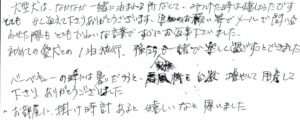 大型犬は、なかなか一緒に泊まれる所がなくて、みつけた時は嬉しかったです
とても かじ迄えて下さりありがとうございます。 の お願い事で メールで 問い合
わせた際もとてもていねいな言葉で すぐに お返事下さいました。
初めての愛犬との1泊旅行、 も一緒で 楽しく過ごすことできました
バーベキューの時は暑いだろうと 扇風機も 台数 増やして 用意して
下さり、ありがとうございました
・お部屋に、掛け時計あると嬉しいなと思いました